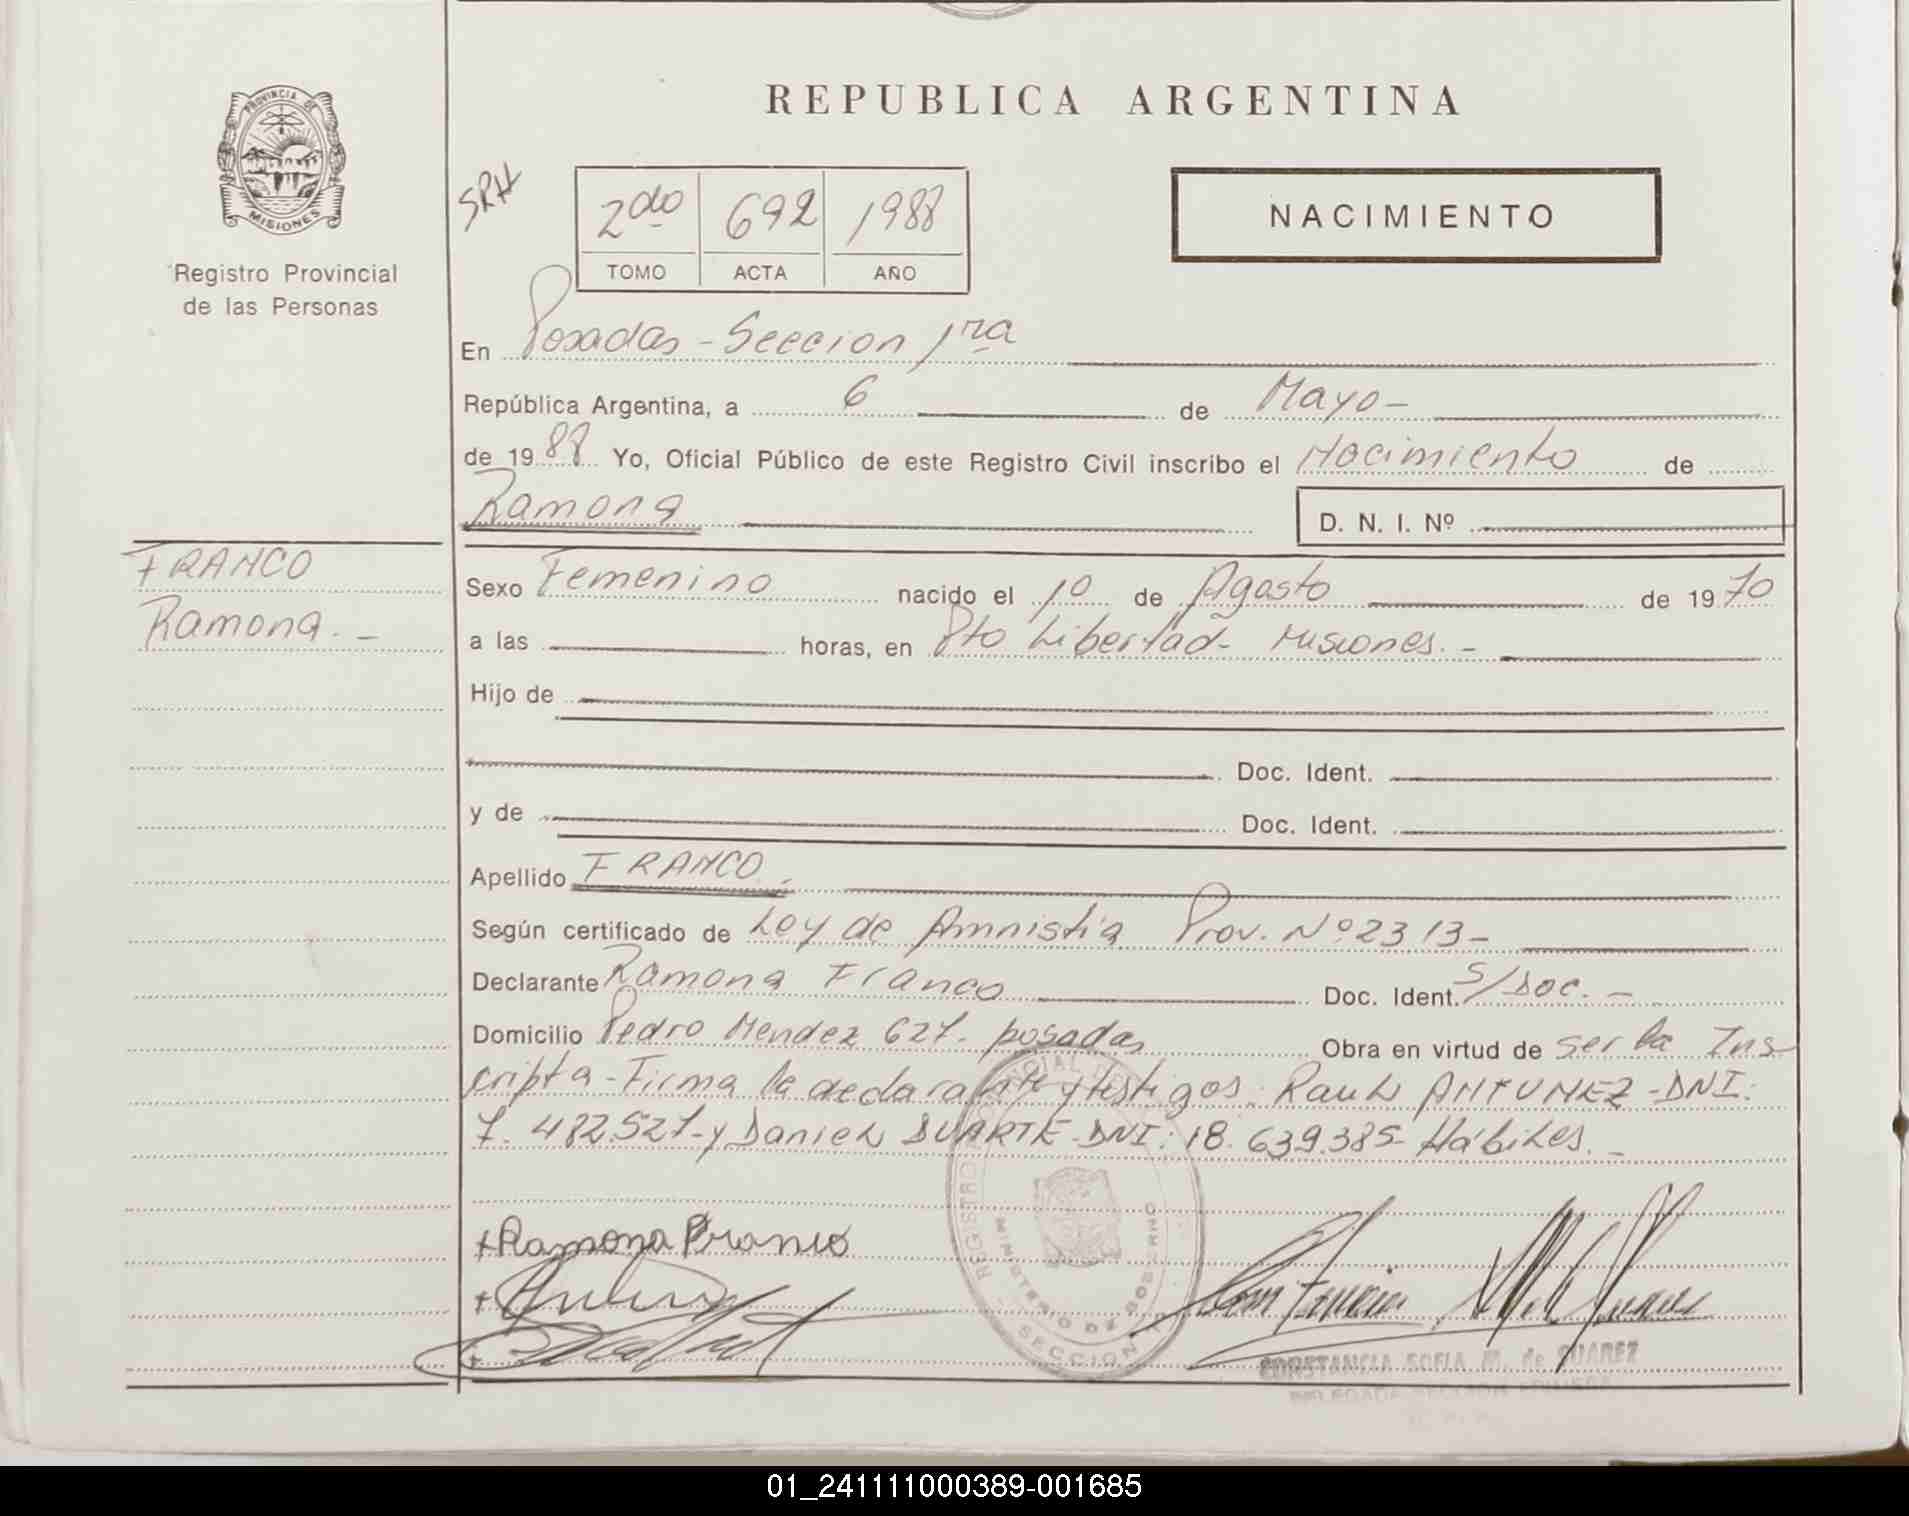 REPUBLICA ARGENTINA
PROVINCIA DE
MISIONES
Registro Provincial
de las Personas
SRH
2do 692 1988
TOMO ACTA AÑO
NACIMIENTO
En Posadas - Seccion 1ra
República Argentina, a 6 de Mayo -
de 1988 Yo, Oficial Público de este Registro Civil inscribo el Nacimiento de
Ramona D. N. I. Nº
FRANCO
Ramona. -
Sexo Femenino nacido el 10 de Agosto de 1970
a las horas, en Pto Libertad - Misiones. -
Hijo de
Doc. Ident.
y de Doc. Ident.
Apellido FRANCO.
Según certificado de Ley de Amnistia Prov. Nº 2313 -
Declarante Ramona Franco Doc. Ident. S/Doc. -
Domicilio Pedro Mendez 627. posadas Obra en virtud de ser la Ins
cripta - Firma la declarante y testigos: Raul ANTUNEZ - DNI:
7. 482.527 - y Daniel DUARTE - DNI: 18. 639.385 - Hábiles. -
+Ramona Franco
MINISTERIO DE GOBIERNO
SECCION
CONSTANCIA SOFIA M. de SUAREZ
DELEGADA SECCION PRIMERA
01_241111000389-001685